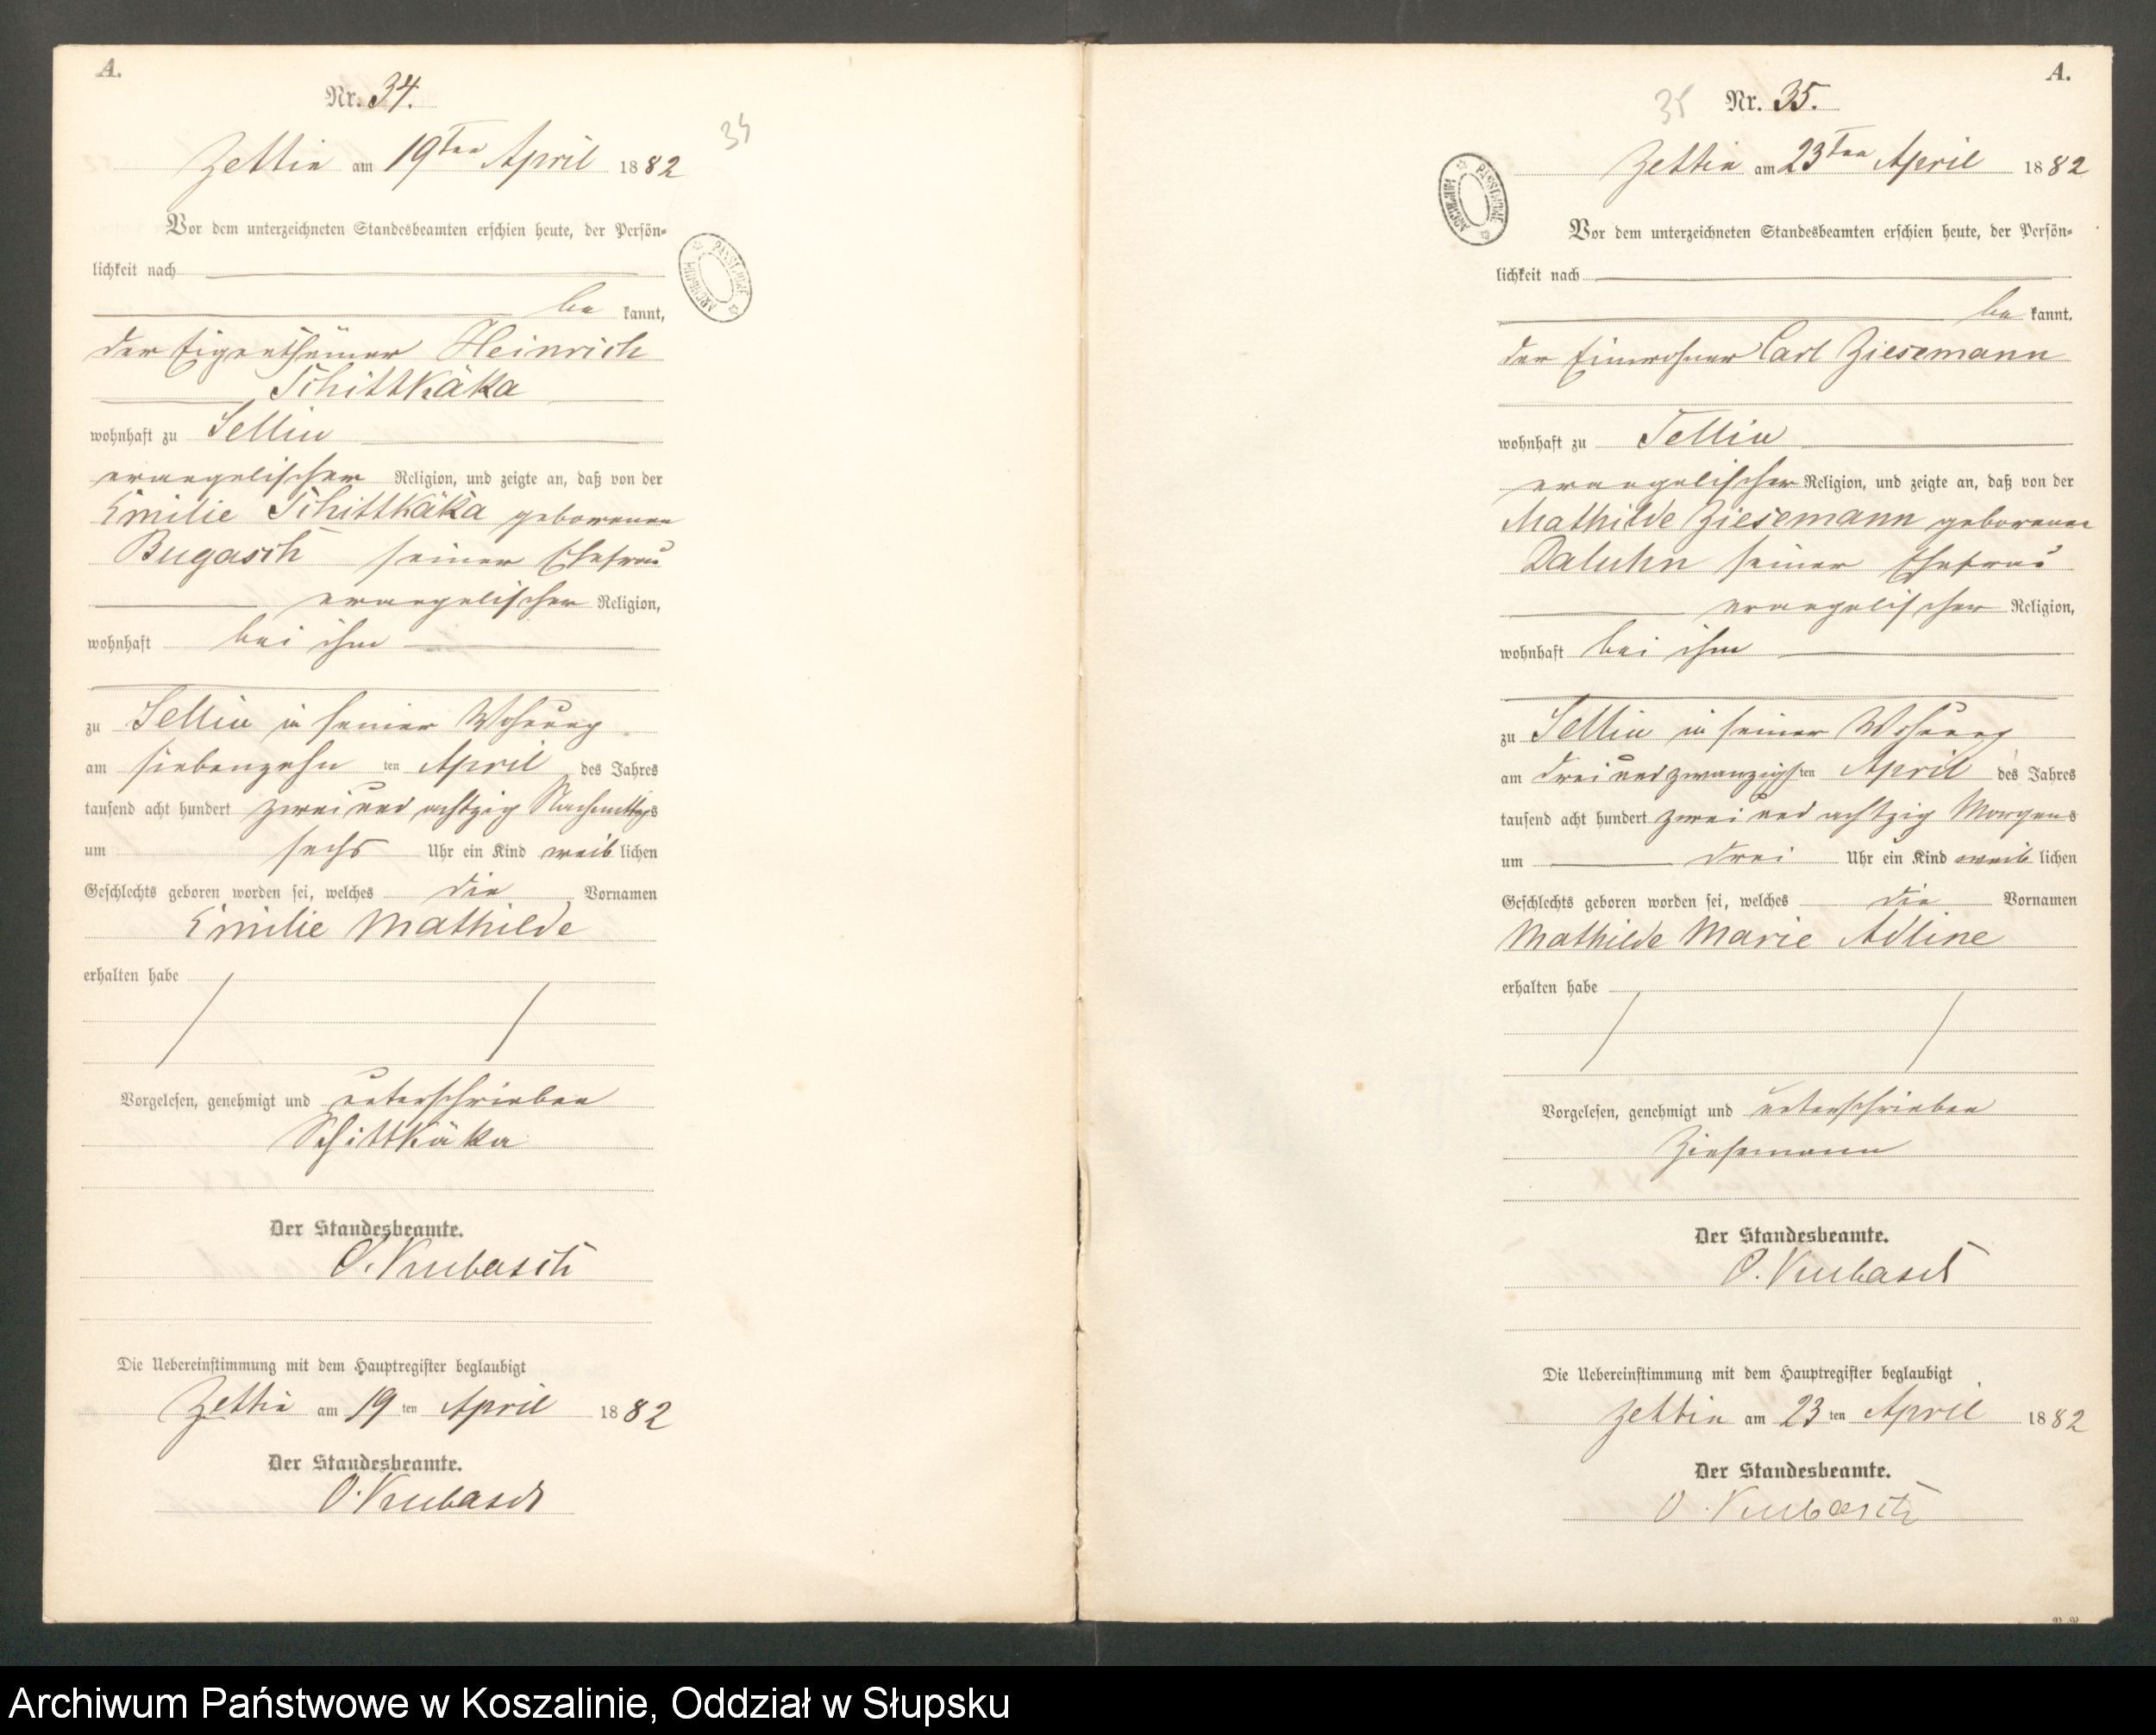 A.
Nr. 34.
34
Zettin am 19ten April 1882
Vor dem unterzeichneten Standesbeamten erschien heute, der Persön-
lichkeit nach
be kannt,
der Eigenthümer Heinrich
Schittkäka
wohnhaft zu Sellin
evangelischer Religion, und zeigte an, daß von der
Emilie Schittkäka geborenen
Bugasch seiner Ehefrau
evangelischer Religion,
wohnhaft bei ihm
zu Sellin in seiner Wohnung
am siebenzehn ten April des Jahres
tausend acht hundert zwei und achtzig Nachmittags
um sechs Uhr ein Kind weib lichen
Geschlechts geboren worden sei, welches die Vornamen
Emilie Mathilde
erhalten habe
Vorgelesen, genehmigt und unterschrieben
Schittkäka
Der Standesbeamte.
O. Kubasch
Die Uebereinstimmung mit dem Hauptregister beglaubigt
Zettin am 19 ten April 1882
Der Standesbeamte.
O. Kubasch
A.
35 Nr. 35.
Zettin am 23ten April 1882
Vor dem unterzeichneten Standesbeamten erschien heute, der Persön-
lichkeit nach
be kannt,
der Einwohner Carl Ziesemann
wohnhaft zu Sellin
evangelischer Religion, und zeigte an, daß von der
Mathilde Ziesemann geborenen
Daluhn seiner Ehefrau
evangelischer Religion,
wohnhaft bei ihm
zu Sellin in seiner Wohnung
am drei und zwanzigsten April des Jahres
tausend acht hundert zwei und achtzig Morgens
um drei Uhr ein Kind weib lichen
Geschlechts geboren worden sei, welches die Vornamen
Mathilde Marie Adline
erhalten habe
Vorgelesen, genehmigt und unterschrieben
Ziesemann
Der Standesbeamte.
O. Kubasch
Die Uebereinstimmung mit dem Hauptregister beglaubigt
Zettin am 23 ten April 1882
Der Standesbeamte.
O. Kubasch
Archiwum Państwowe w Koszalinie, Oddział w Słupsku